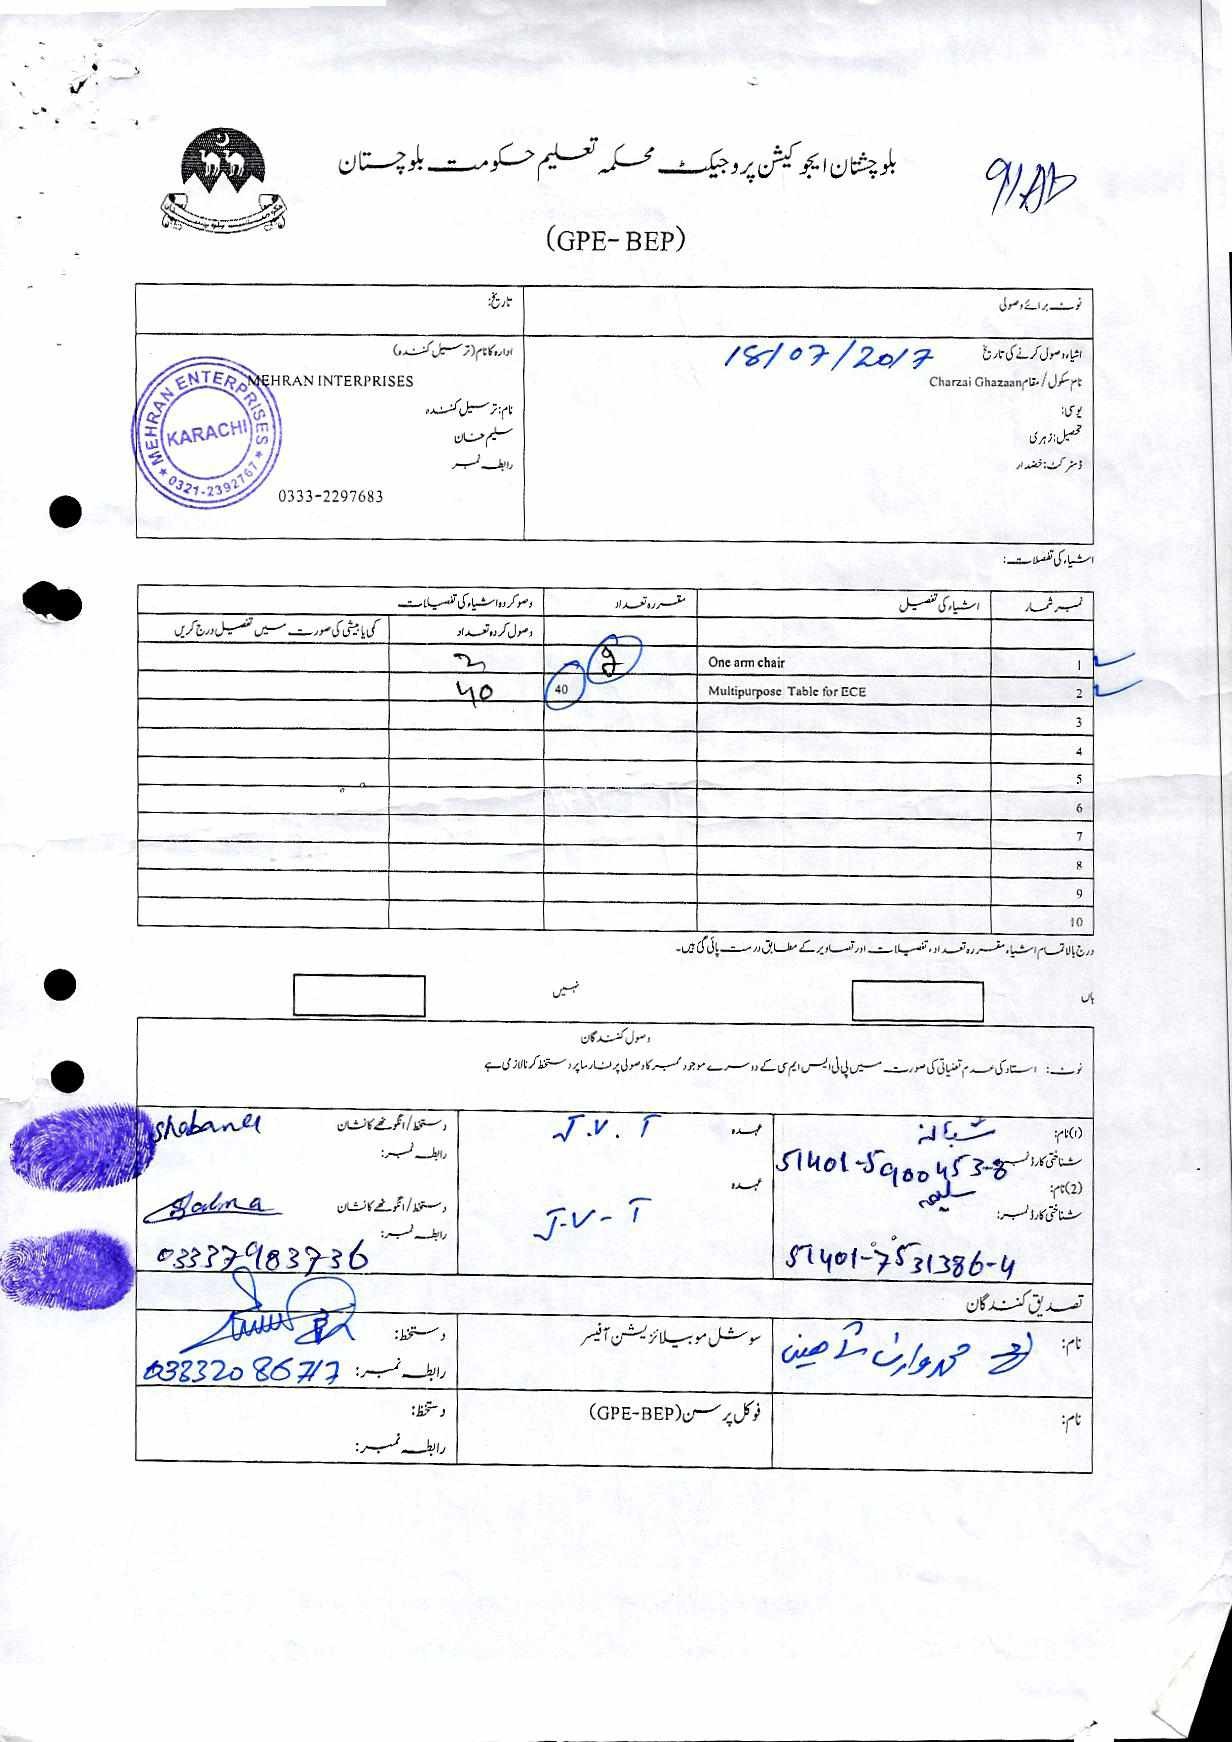 بلوچستان ایجوکیشن پروجیکٹ محکمہ تعلیم حکومت بلوچستان
(GPE-BEP)
نوٹ برائے وصولی
تاریخ:
اشیاء وصول کرنے کی تاریخ 18/07/2017
نام سکول / مقام Charzai Ghazaan
یوسی:
تحصیل: زہری
ڈسٹرکٹ: خضدار
ادارہ کا نام (ترسیل کنندہ)
MEHRAN INTERPRISES
نام: ترسیل کنندہ
سلیم خان
رابطہ نمبر
0333-2297683
MEHRAN ENTERPRISES
KARACHI
0321-2392767
اشیاء کی تفصلات:
نمبر شمار اشیاء کی تفصیل مقررہ تعداد وصو کردہ اشیاء کی تفصیلات
وصول کردہ تعداد کمی یا بیشی کی صورت میں تفصیل درج کریں
1 One arm chair 2
2 Multipurpose Table for ECE 40 40
3
4
5
6
7
8
9
10
درج بالا تمام اشیاء مقررہ تعداد، تفصیلات اور تصاویر کے مطابق درست پائی گئی ہیں۔
ہاں
نہیں
وصول کنندگان
نوٹ: استاد کی عدم تعیناتی کی صورت میں پی ٹی ایس ایم سی کے دوسرے موجود ممبر کا وصولی پر فارما پر دستخط کرنا لازمی ہے
(1) نام: شبانہ عہدہ J.V.T دستخط / انگوٹھے کا نشان Shabana
شناختی کارڈ نمبر 51401-5900453-8 رابطہ نمبر:
(2) نام: سلیمہ عہدہ J-V-T دستخط / انگوٹھے کا نشان Salma
شناختی کارڈ نمبر: 51401-7531386-4 رابطہ نمبر: 03337983736
تصدیق کنندگان
نام: محمد وارث شاھین سوشل موبیلائزیشن آفیسر دستخط:
رابطہ نمبر: 03332086717
نام: فوکل پرسن (GPE-BEP) دستخط:
رابطہ نمبر: